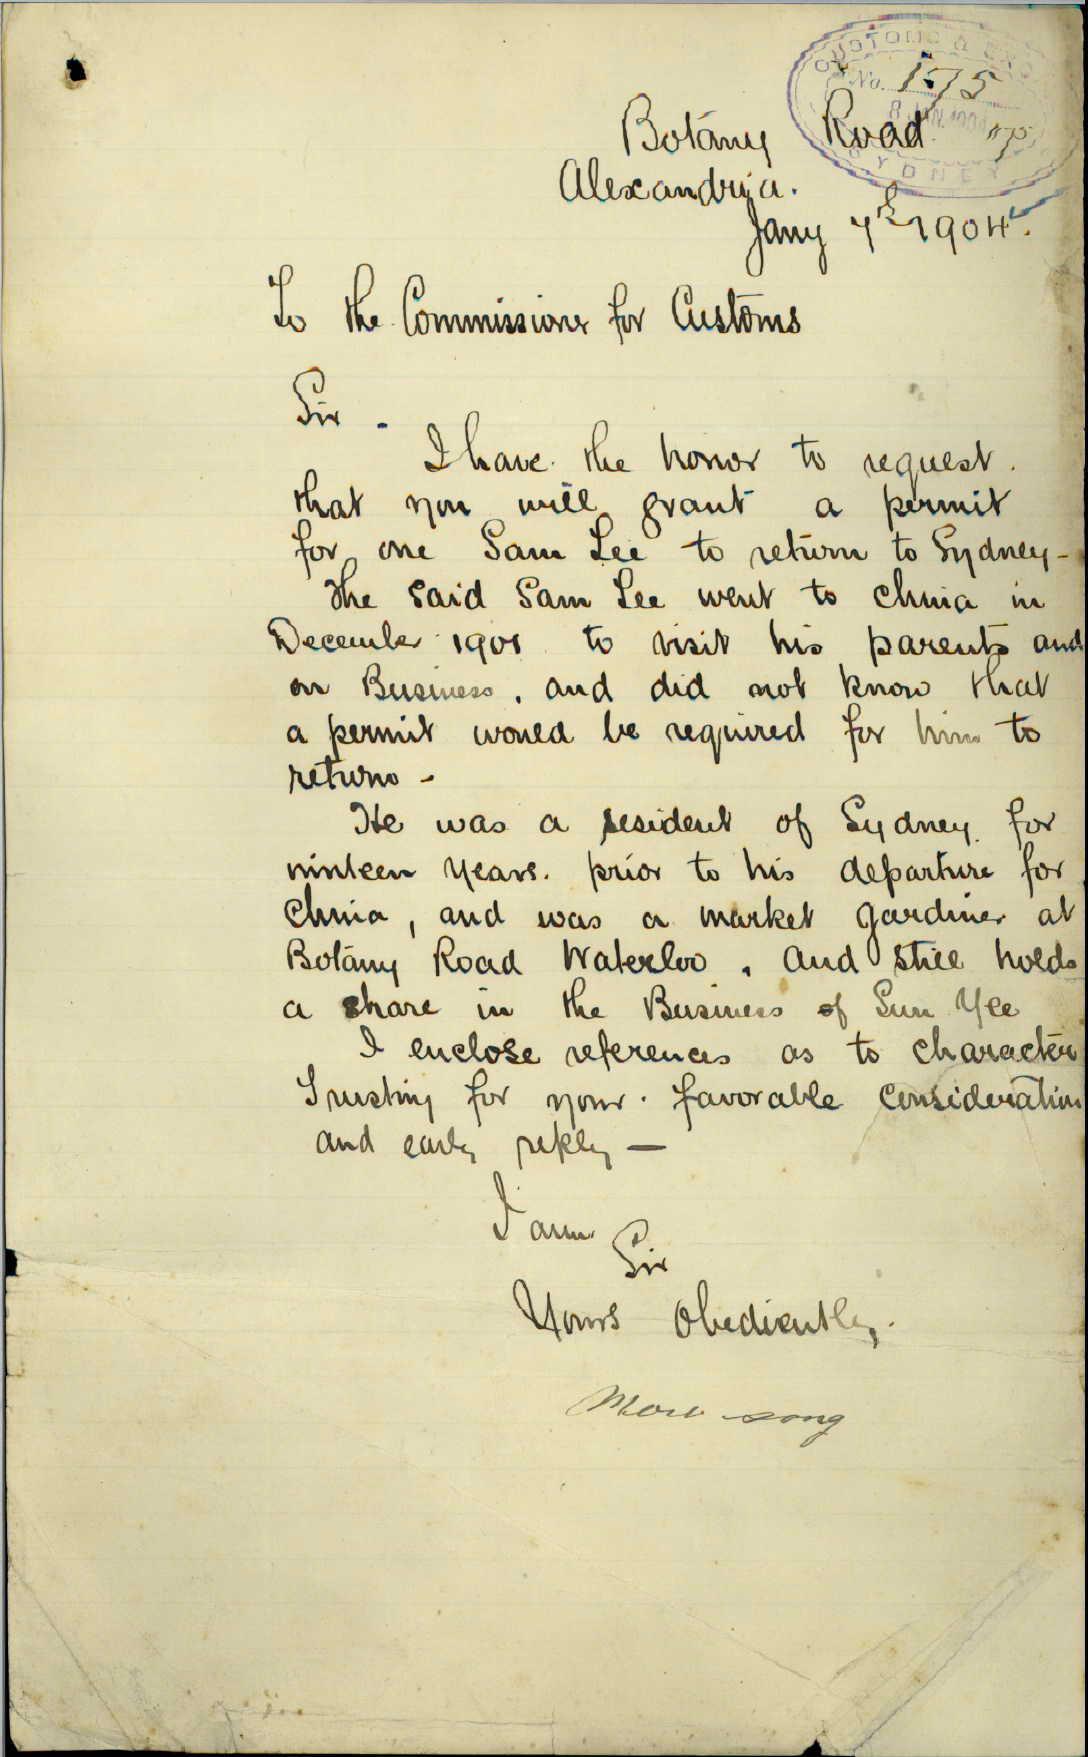 CUSTOMS &
No. 175
8 JAN. 1904
SYDNEY
Botany Road
Alexandria.
Jany 7th 1904.
To the Commissioner for Customs
Sir -
I have the honor to request
that you will grant a permit
for one Sam Lee to return to Sydney -
The said Sam Lee went to China in
December 1901 to visit his parents and
on Business, and did not know that
a permit would be required for him to
return -
He was a resident of Sydney for
ninteen years. prior to his departure for
China, and was a market gardiner at
Botany Road Waterloo, and still holds
a share in the Business of Sun Yee
I enclose references as to character
Trusting for your favorable consideration
and early reply —
I am
Sir
Yours Obediently,
song